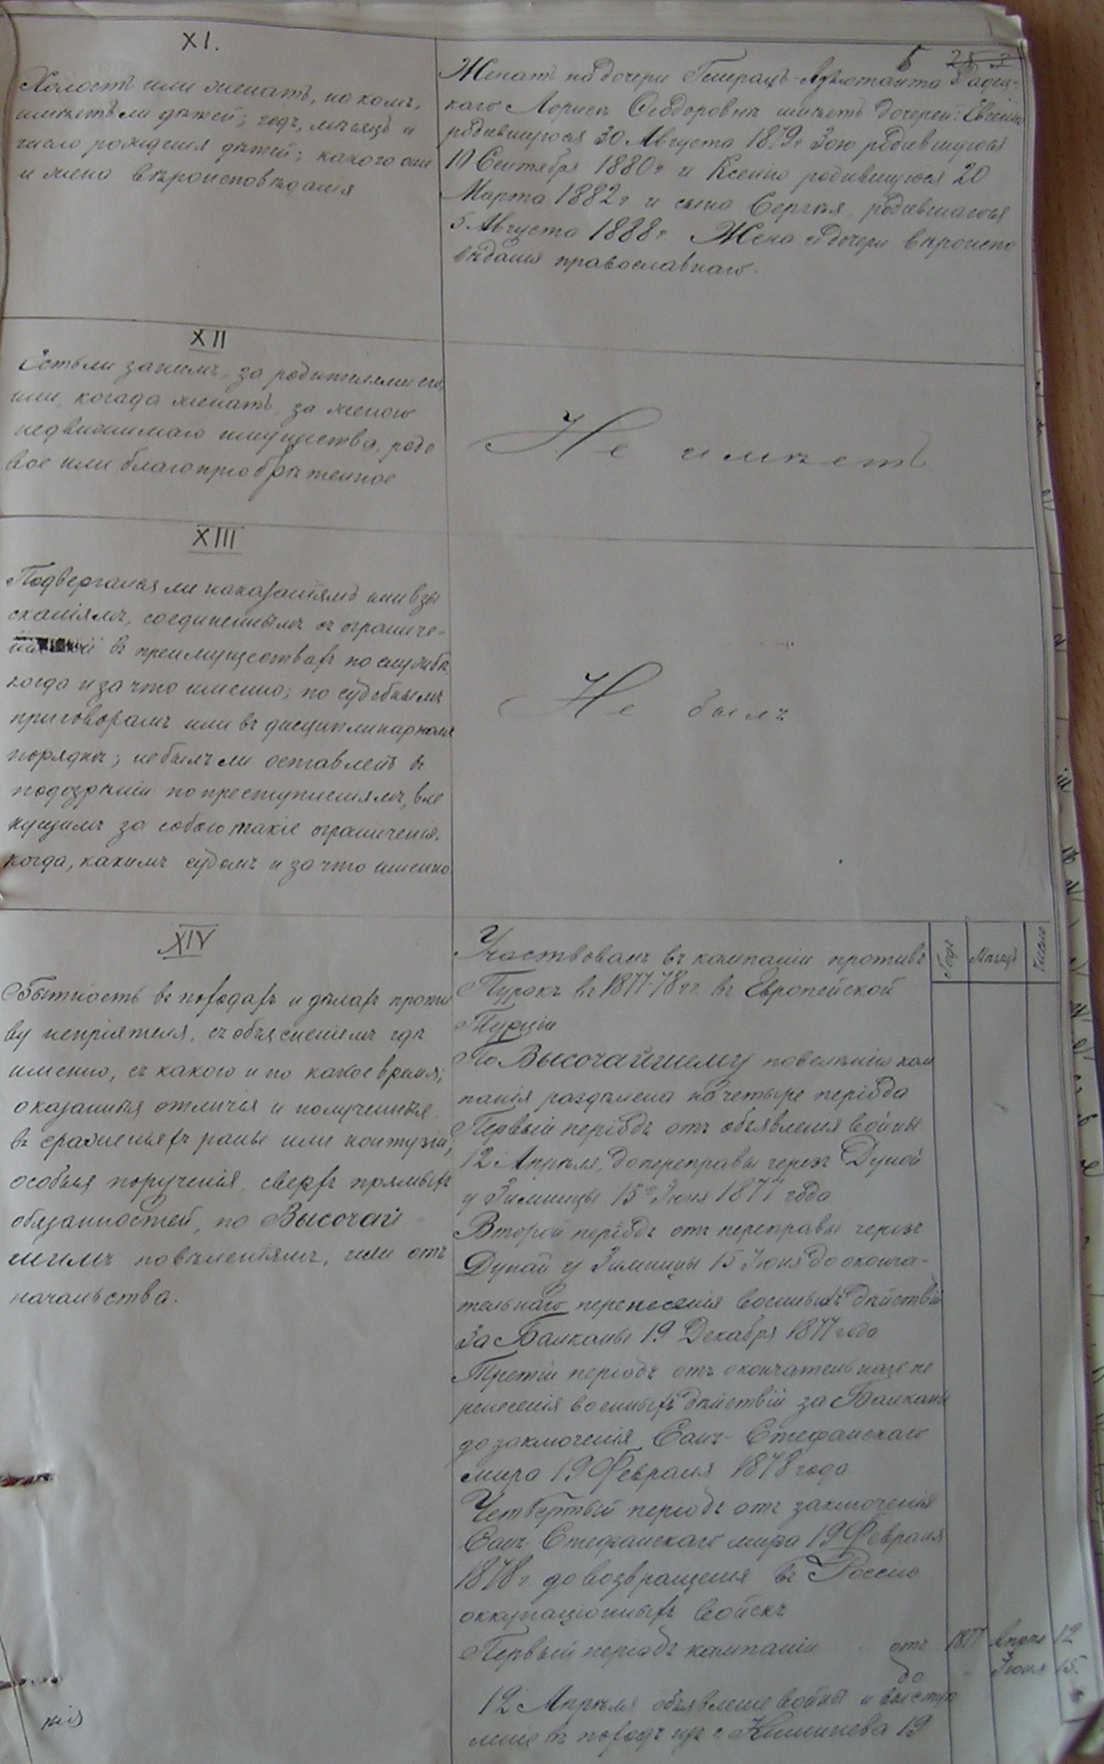 5 25
XI.
Холостъ или женатъ, на комъ,
имѣетъ ли дѣтей; годъ, мѣсяцъ и
число рожденія дѣтей; какого они
и жена вѣроисповѣданія
Женатъ на дочери Генералъ-Адъютанта Радец-
каго Ѳеодоровнѣ имѣетъ дочерей: Евгенію
родившуюся 30 Августа 1879г Зою родившуюся
10 Сентября 1880г и Ксенію родившуюся 20
Марта 1882г и сына Сергѣя родившагося
5 Августа 1888г Жена и дочери вѣроиспо
вѣданія православнаго.
XII
Есть ли за нимъ, за родителями его
или, когада женатъ, за женою
недвижимаго имущества, родо
вое или благопріобрѣтенное
Не имѣетъ
XIII
Подвергался ли наказаніямъ или взы
сканіямъ, соединеннымъ съ ограниче-
въ преимуществахъ по службѣ,
когда и за что именно; по судебнымъ
приговорамъ или въ дисциплинарномъ
порядкѣ; не былъ ли оставленъ въ
подозрѣніи по преступленіямъ, вле
кущимъ за собою такіе ограниченія,
когда, какимъ судомъ и за что именно
Не былъ
XIV
Бытность въ походахъ и дѣлахъ проти
ву непріятеля, съ объясненіемъ гдѣ
именно, съ какого и по какое время;
оказанныя отличія и полученныя
въ сраженьяхъ раны или контузіи;
особыя порученія, сверхъ прямыхъ
обязанностей, по Высочай
шимъ повѣленіямъ, или отъ
начальства.
Участвовалъ въ кампаніи противъ
Турокъ въ 1877-78 гг. въ Европейской
Турціи
По Высочайшему повелѣнію кам
панія раздѣлена на четыре періода
Первый періодъ отъ объявленія войны
12 Апрѣля, до переправы черезъ Дунай
у Зимницы 15го Іюня 1877 года
Второй періодъ отъ переправы черезъ
Дунай у Зимницы 15 Іюня до оконча-
тельнаго перенесенія военныхъ дѣйствій
за Балканы 19 Декабря 1877 года
Третій періодъ отъ окончательнаго пе
ренесенія военныхъ дѣйствій за Балканы
до заключенія Санъ-Стефанскаго
мира 19 Февраля 1878 года
Четвертый періодъ отъ заключенія
Санъ Стефанскаго мира 19 Февраля
1878г до возвращенія въ Россію
оккупаціонныхъ войскъ
Первый періодъ кампаніи отъ
до
12 Апрѣля объявленіе войны и выступ
леніе въ походъ изъ г. Кишинева 19
Годъ Мѣсяцъ Число
1877 Апрѣл 12
" Іюня 15.
нія